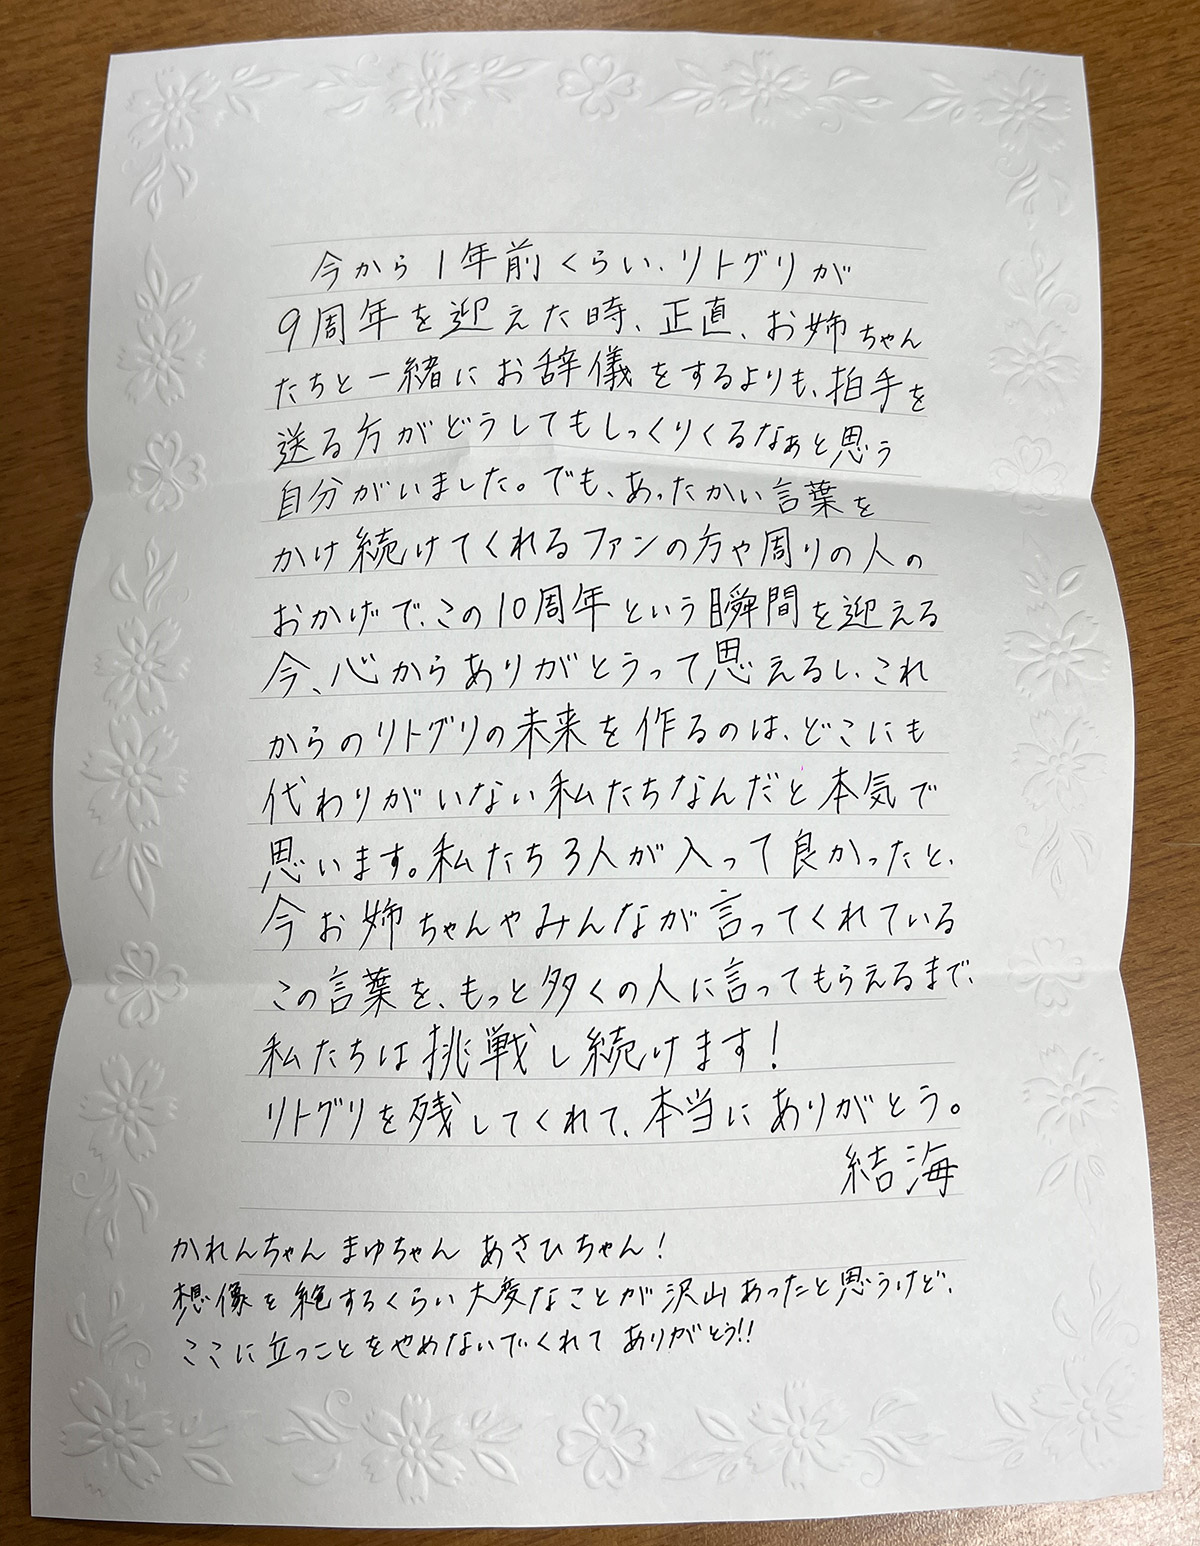 今から1年前くらい、リトグリが
9周年を迎えた時、正直、お姉ちゃん
たちと一緒にお辞儀をするよりも、拍手を
送る方がどうしてもしっくりくるなぁと思う
自分がいました。でも、あったかい言葉を
かけ続けてくれるファンの方や周りの人の
おかげで、この10周年という瞬間を迎える
今、心からありがとうって思えるし、これ
からのリトグリの未来を作るのは、どこにも
代わりがいない私たちなんだと本気で
思います。私たち3人が入って良かったと、
今お姉ちゃんやみんなが言ってくれている
この言葉を、もっと多くの人に言ってもらえるまで、
私たちは挑戦し続けます!
リトグリを残してくれて、本当にありがとう。
結海
かれんちゃん まゆちゃん あさひちゃん!
想像を絶するくらい大変なことが沢山あったと思うけど、
ここに立つことをやめないでくれてありがとう!!